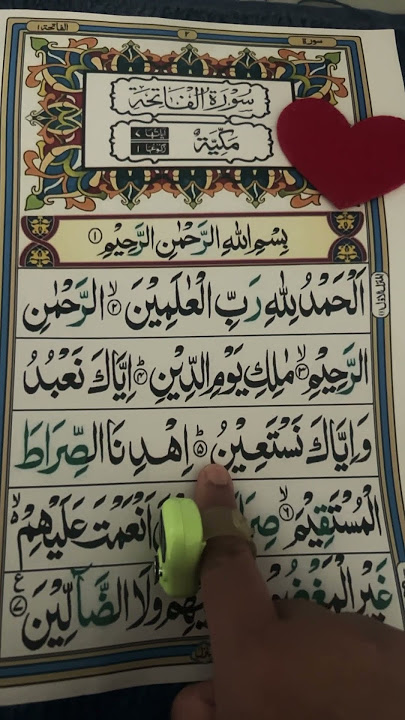 الفاتحة ١ ٢ سورة
سُوْرَةُ الْفَاتِحَةِ
مَكِّيَّةٌ
اٰيَاتُهَا ٧
رُكُوْعُهَا ١
بِسْمِ اللّٰهِ الرَّحْمٰنِ الرَّحِيْمِ ١
اَلْحَمْدُ لِلّٰهِ رَبِّ الْعٰلَمِيْنَ ۙ ٢ الرَّحْمٰنِ
الرَّحِيْمِ ۙ ٣ مٰلِكِ يَوْمِ الدِّيْنِ ؕ ٤ اِيَّاكَ نَعْبُدُ
وَاِيَّاكَ نَسْتَعِيْنُ ؕ ٥ اِهْدِنَا الصِّرَاطَ
الْمُسْتَقِيْمَ ۙ ٦ اَنْعَمْتَ عَلَيْهِمْ ۙ
غَيْرِ وَلَا الضَّآلِّيْنَ ٧ ع